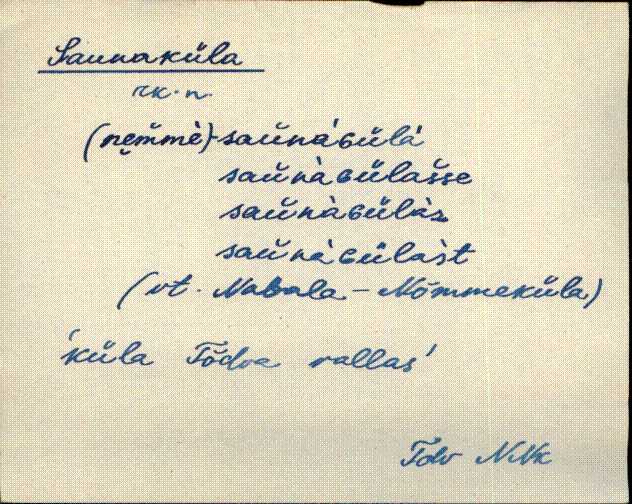 Saunaküla
rk. n.
(ne̮m̆mè)-saŭnàɢülà
saŭnàɢülašse
saŭnàɢülàz
saŭnàɢülàst
(vt. Nabala-Nõmmeküla)
'küla Tõdva vallas'
Tdv NNk